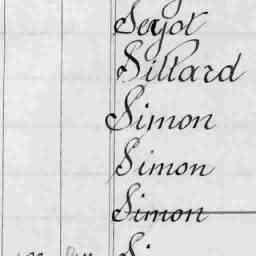 Seyot
Sillard
Simon
Simon
Simon